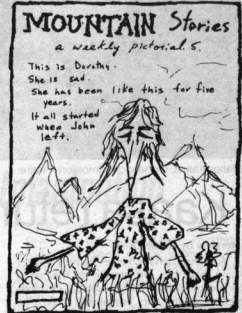 MOUNTAIN Stories
a weekly pictorial 5.
This is Dorothy.
She is sad.
She has been like this for five
years.
It all started
when John
left.